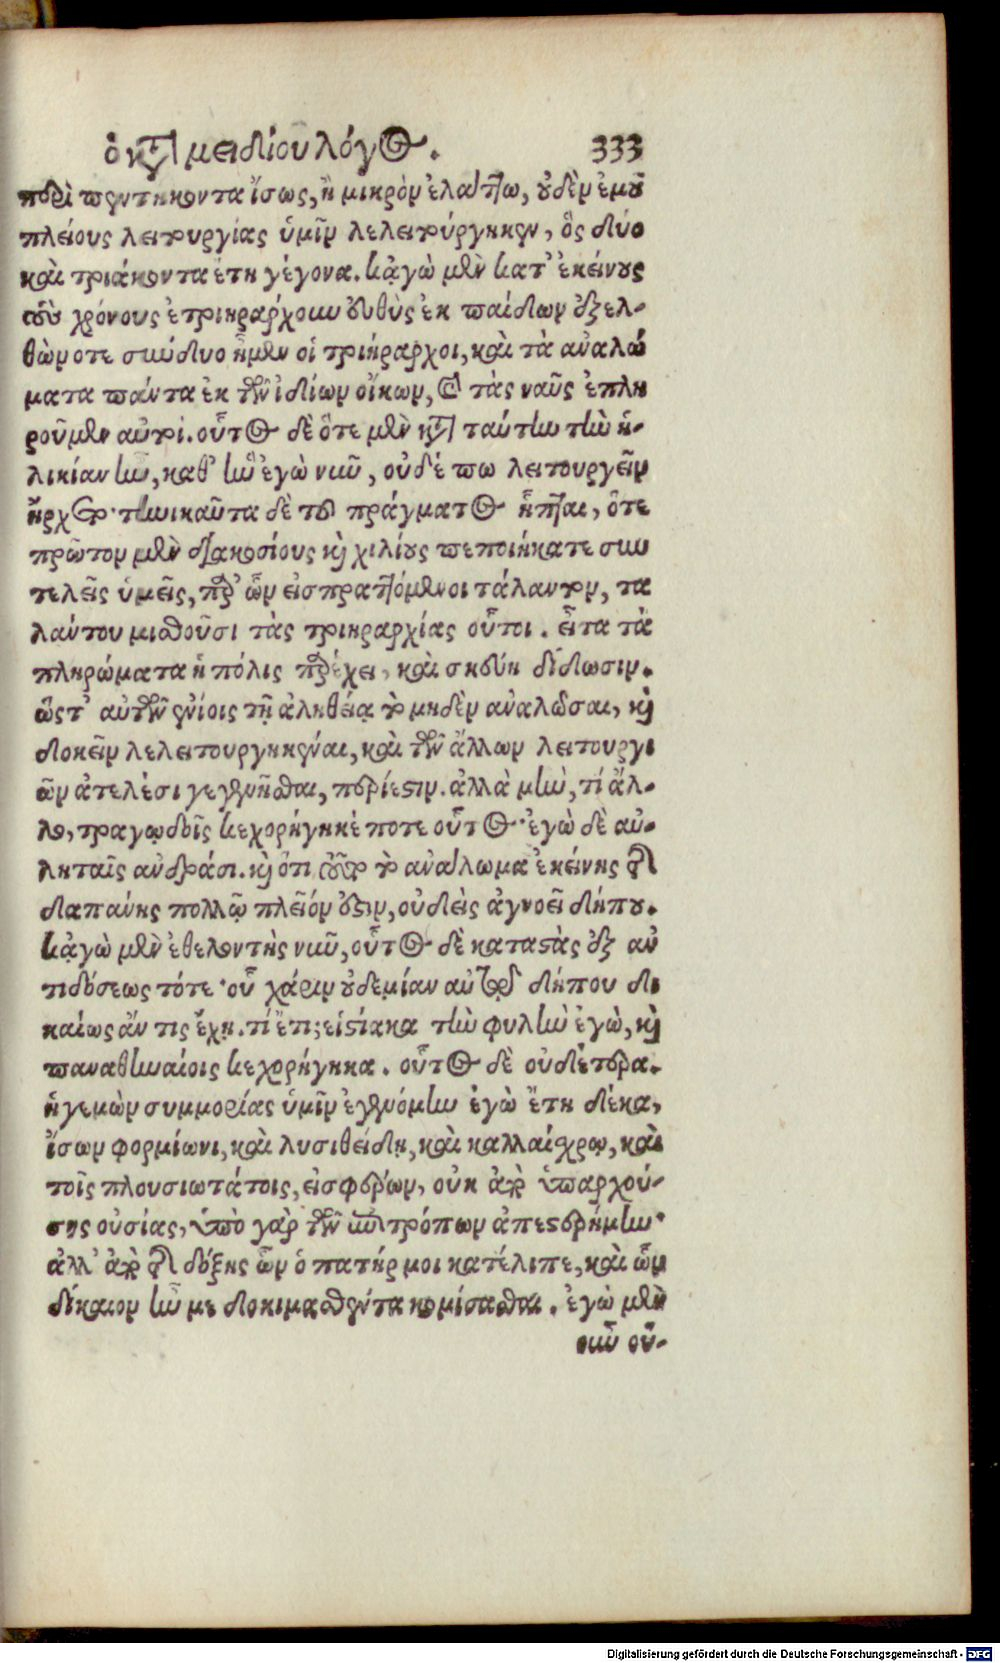 ὁ κατὰ μειδίου λόγος. 333
περὶ πεντήκοντα ἴσως, ἢ μικρὸν ἐλάττω, οὐδὲν ἐμοῦ
πλείους λειτουργίας ὑμῖν λελειτούργηκεν, ὃς δύο
καὶ τριάκοντα ἔτη γέγονα. κᾀγὼ μὲν κατ' ἐκείνους
τοὺς χρόνους ἐτριηράρχουν εὐθὺς ἐκ παίδων ἐξελ-
θὼν ὅτε σύνδυο ἦμεν οἱ τριήραρχοι, καὶ τὰ ἀναλώ
ματα πάντα ἐκ τῶν ἰδίων οἴκων, καὶ τὰς ναῦς ἐπλη
ροῦμεν αὐτοί. οὗτος δὲ ὅτε μὲν κατὰ ταύτην τὴν ἡ-
λικίαν ἦν, καθ' ἣν ἐγὼ νῦν, οὐδέ πω λειτουργεῖν
ἤρχετο· τηνικαῦτα δὲ τοῦ πράγματος ἧπται, ὅτε
πρῶτον μὲν διακοσίους καὶ χιλίους πεποιήκατε συν
τελεῖς ὑμεῖς, παρ' ὧν εἰσπραττόμενοι τάλαντον, τα
λάντου μισθοῦσι τὰς τριηραρχίας οὗτοι. εἶτα τὰ
πληρώματα ἡ πόλις παρέχει, καὶ σκεύη δίδωσιν.
ὥςτ' αὐτῶν ἐνίοις τῇ ἀληθείᾳ τὸ μηδὲν ἀναλῶσαι, καὶ
δοκεῖν λελειτουργηκέναι, καὶ τῶν ἄλλων λειτουργι
ῶν ἀτελέσι γεγενῆσθαι, περίεστιν. ἀλλὰ μὴν, τί ἄλ-
λο, τραγῳδοῖς κεχορήγηκέ ποτε οὗτος· ἐγὼ δὲ αὐ-
ληταῖς ἀνδράσι. καὶ ὅτι τοῦτο τὸ ἀνάλωμα ἐκείνης τῆς
δαπάνης πολλῷ πλεῖόν ἐστιν, οὐδεὶς ἀγνοεῖ δήπου.
κᾀγὼ μὲν ἐθελοντὴς νῦν, οὗτος δὲ καταστὰς ἐξ ἀν
τιδόσεως τότε· οὗ χάριν οὐδεμίαν αὐτῷ δήπου δι
καίως ἄν τις ἔχῃ. τί ἔτι; εἱστίακα τὴν φυλὴν ἐγὼ, καὶ
παναθηναίοις κεχορήγηκα. οὗτος δὲ οὐδέτερα.
ἡγεμὼν συμμορίας ὑμῖν ἐγενόμην ἐγὼ ἔτη δέκα,
ἴσων φορμίωνι, καὶ λυσιθείδῃ, καὶ καλλαίσχρῳ, καὶ
τοῖς πλουσιωτάτοις, εἰσφέρων, οὐκ ἀπὸ ὑπαρχού-
σης οὐσίας, ὑπὸ γὰρ τῶν ἐπιτρόπων ἀπεστερήμην·
ἀλλ' ἀπὸ τῆς δόξης ὧν ὁ πατήρ μοι κατέλιπε, καὶ ὧν
δίκαιον ἦν με δοκιμασθέντα κομίσασθαι. ἐγὼ μὲν
οὖν οὕ-
Digitalisierung gefördert durch die Deutsche Forschungsgemeinschaft - DFG